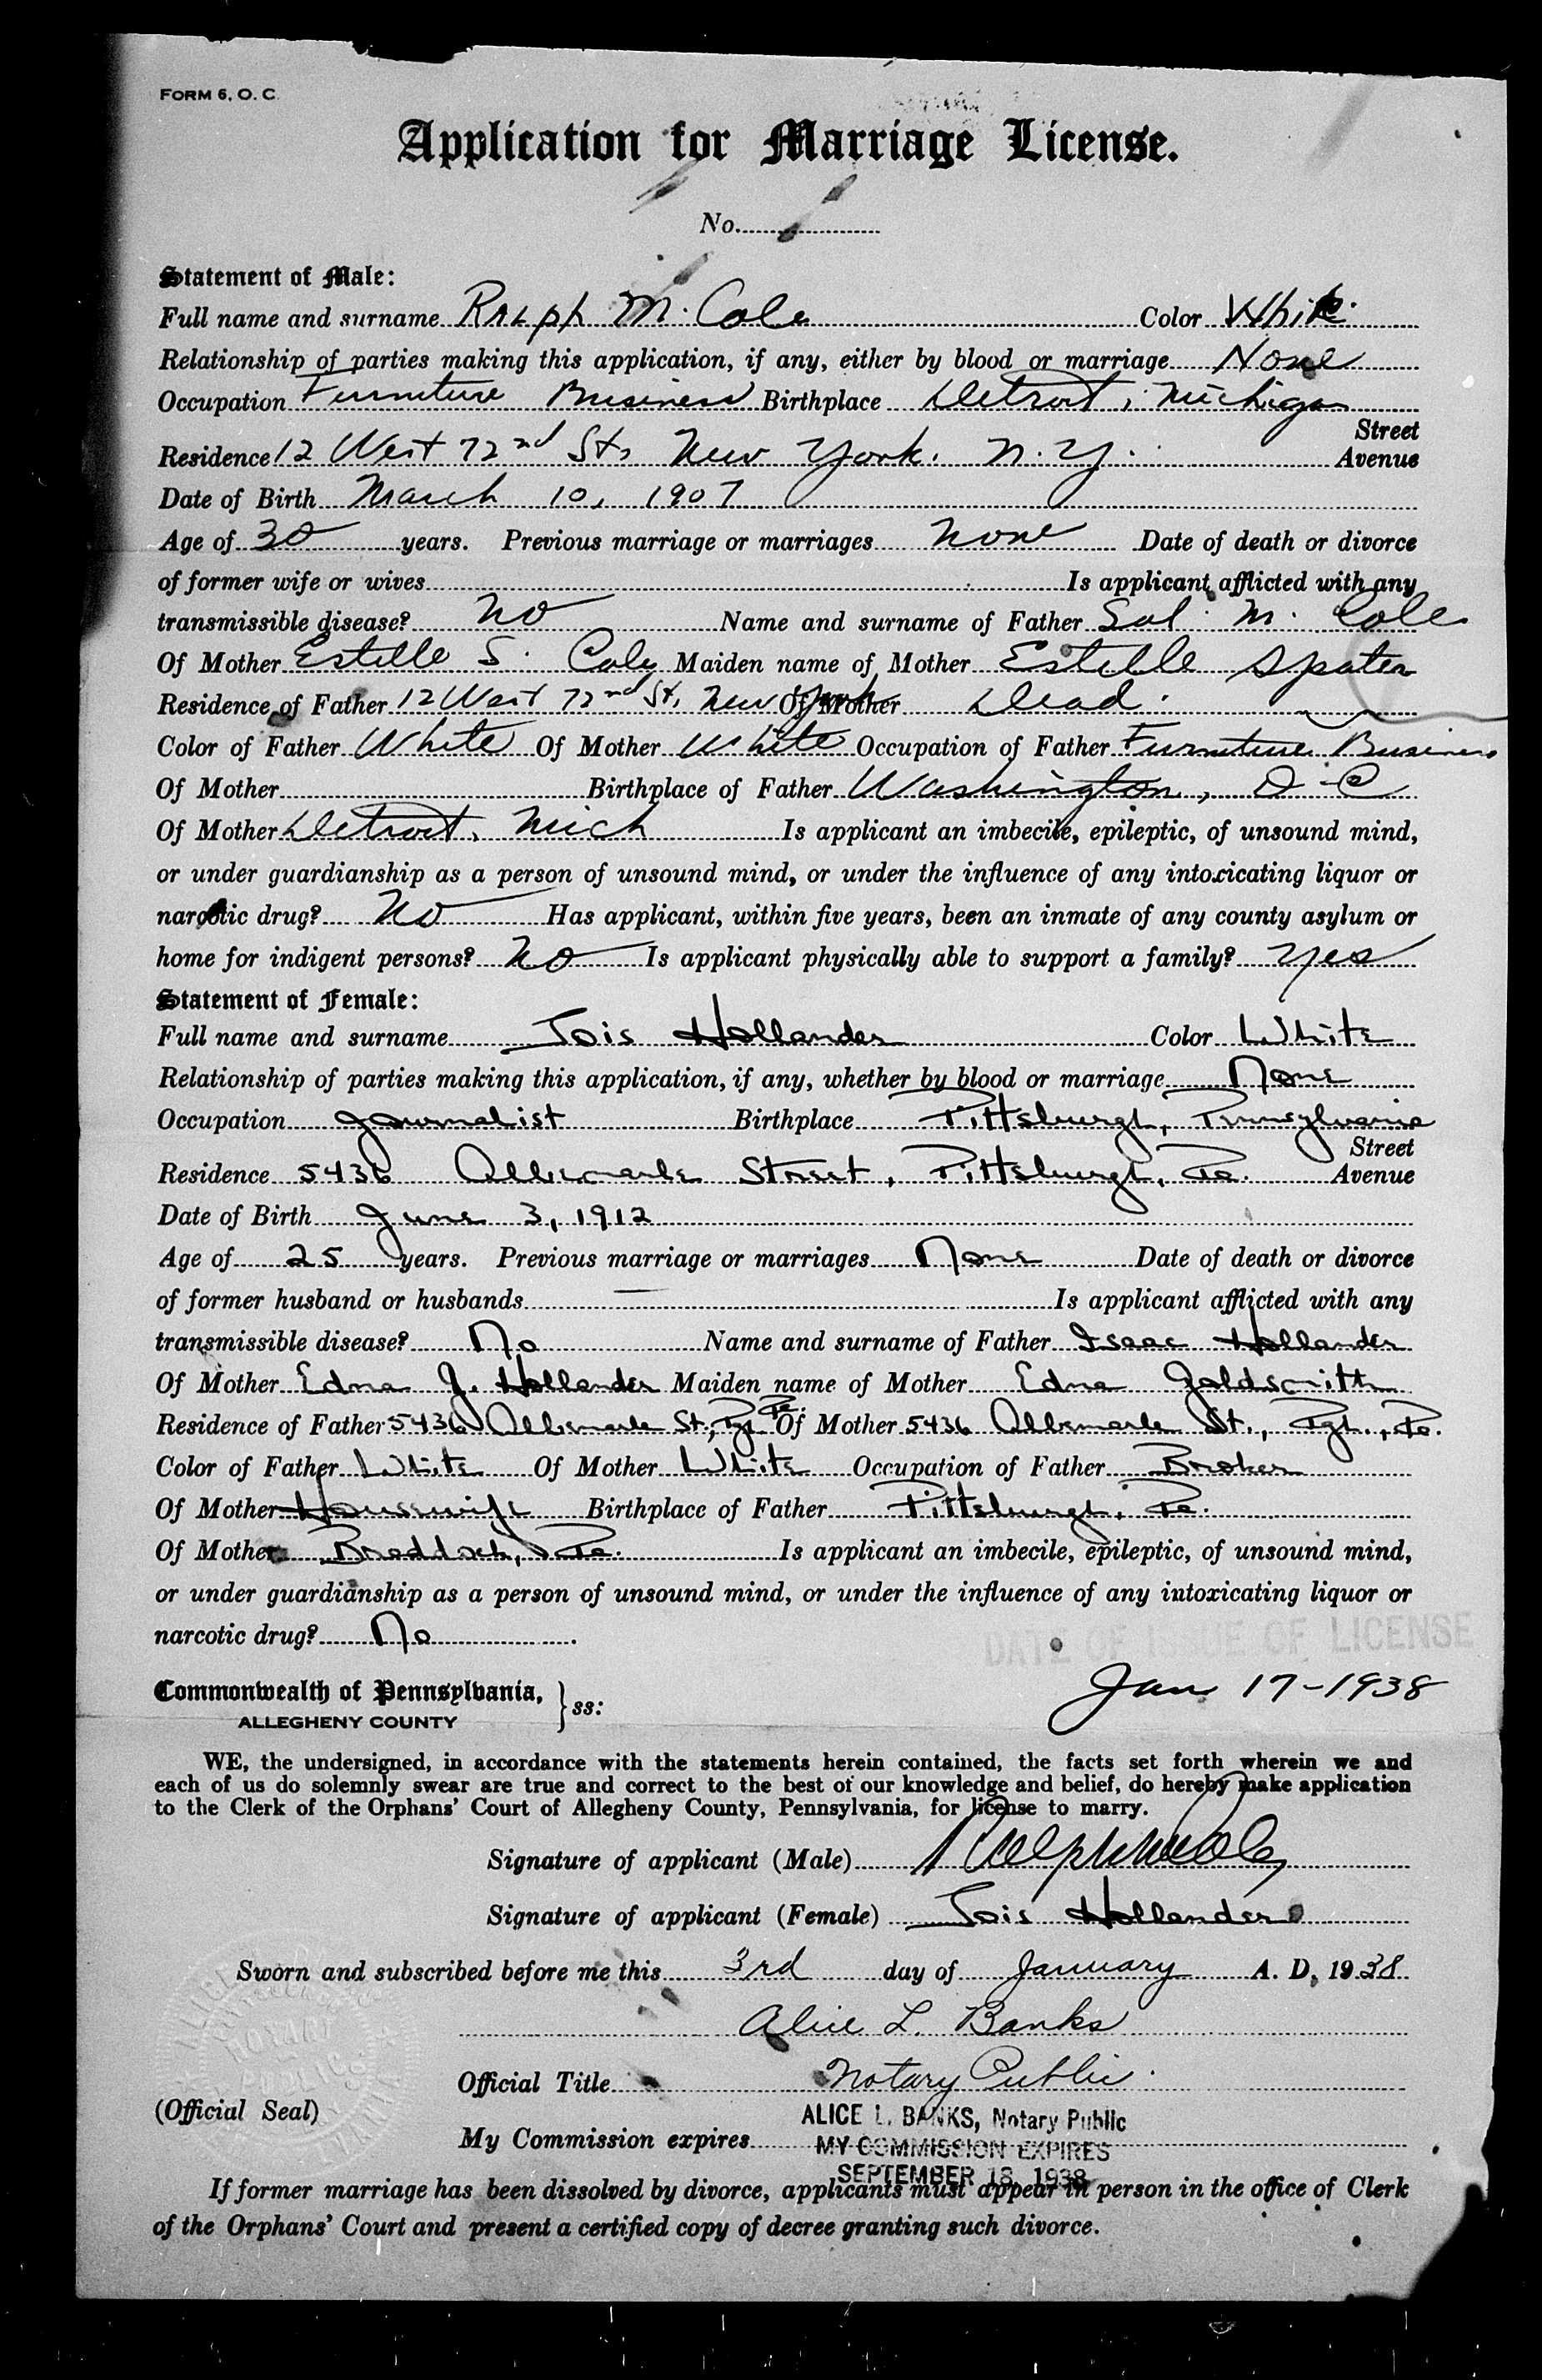 FORM 6, O. C.
Application for Marriage License.
No.
Statement of Male:
Full name and surname Ralph M. Cole Color White
Relationship of parties making this application, if any, either by blood or marriage None
Occupation Furniture Business Birthplace Detroit, Michigan
Street
Residence 12 West 72nd St, New York. N.Y. Avenue
Date of Birth March 10, 1907
Age of 30 years. Previous marriage or marriages none Date of death or divorce
of former wife or wives Is applicant afflicted with any
transmissible disease? No Name and surname of Father Sol M. Cole
Of Mother Estelle S. Cole Maiden name of Mother Estelle
Residence of Father 12 West 72nd St, New York Of Mother Dead.
Color of Father White Of Mother White Occupation of Father Furniture Business
Of Mother Birthplace of Father Washington, D.C
Of Mother Detroit, Mich Is applicant an imbecile, epileptic, of unsound mind,
or under guardianship as a person of unsound mind, or under the influence of any intoxicating liquor or
narcotic drug? No Has applicant, within five years, been an inmate of any county asylum or
home for indigent persons? No Is applicant physically able to support a family? Yes
Statement of Female:
Full name and surname Hollander Color White
Relationship of parties making this application, if any, whether by blood or marriage None
Occupation Journalist Birthplace Pittsburgh, Pennsylvania
Street
Residence 5436 Albemarle Street, Pittsburgh, Pa. Avenue
Date of Birth June 3, 1912
Age of 25 years. Previous marriage or marriages None Date of death or divorce
of former husband or husbands — Is applicant afflicted with any
transmissible disease? No Name and surname of Father Isaac Hollander
Of Mother Edna J. Hollander Maiden name of Mother Edna Goldsmith
Residence of Father 5436 Albemarle St., Pgh. Pa. Of Mother 5436 Albemarle St., Pgh., Pa.
Color of Father White Of Mother White Occupation of Father Broker
Of Mother Housewife Birthplace of Father Pittsburgh, Pa.
Of Mother Braddock, Pa. Is applicant an imbecile, epileptic, of unsound mind,
or under guardianship as a person of unsound mind, or under the influence of any intoxicating liquor or
narcotic drug? No
DATE OF ISSUE OF LICENSE
Jan 17-1938
Commonwealth of Pennsylvania, } ss:
ALLEGHENY COUNTY
WE, the undersigned, in accordance with the statements herein contained, the facts set forth wherein we and
each of us do solemnly swear are true and correct to the best of our knowledge and belief, do hereby make application
to the Clerk of the Orphans' Court of Allegheny County, Pennsylvania, for license to marry.
Signature of applicant (Male) Ralph M Cole
Signature of applicant (Female) Hollander
Sworn and subscribed before me this 3rd day of January A. D. 1938
Alice L. Banks
Official Title Notary Public.
(Official Seal)
ALICE L. BANKS, Notary Public
My Commission expires MY COMMISSION EXPIRES
SEPTEMBER 18, 1938
If former marriage has been dissolved by divorce, applicants must appear in person in the office of Clerk
of the Orphans' Court and present a certified copy of decree granting such divorce.